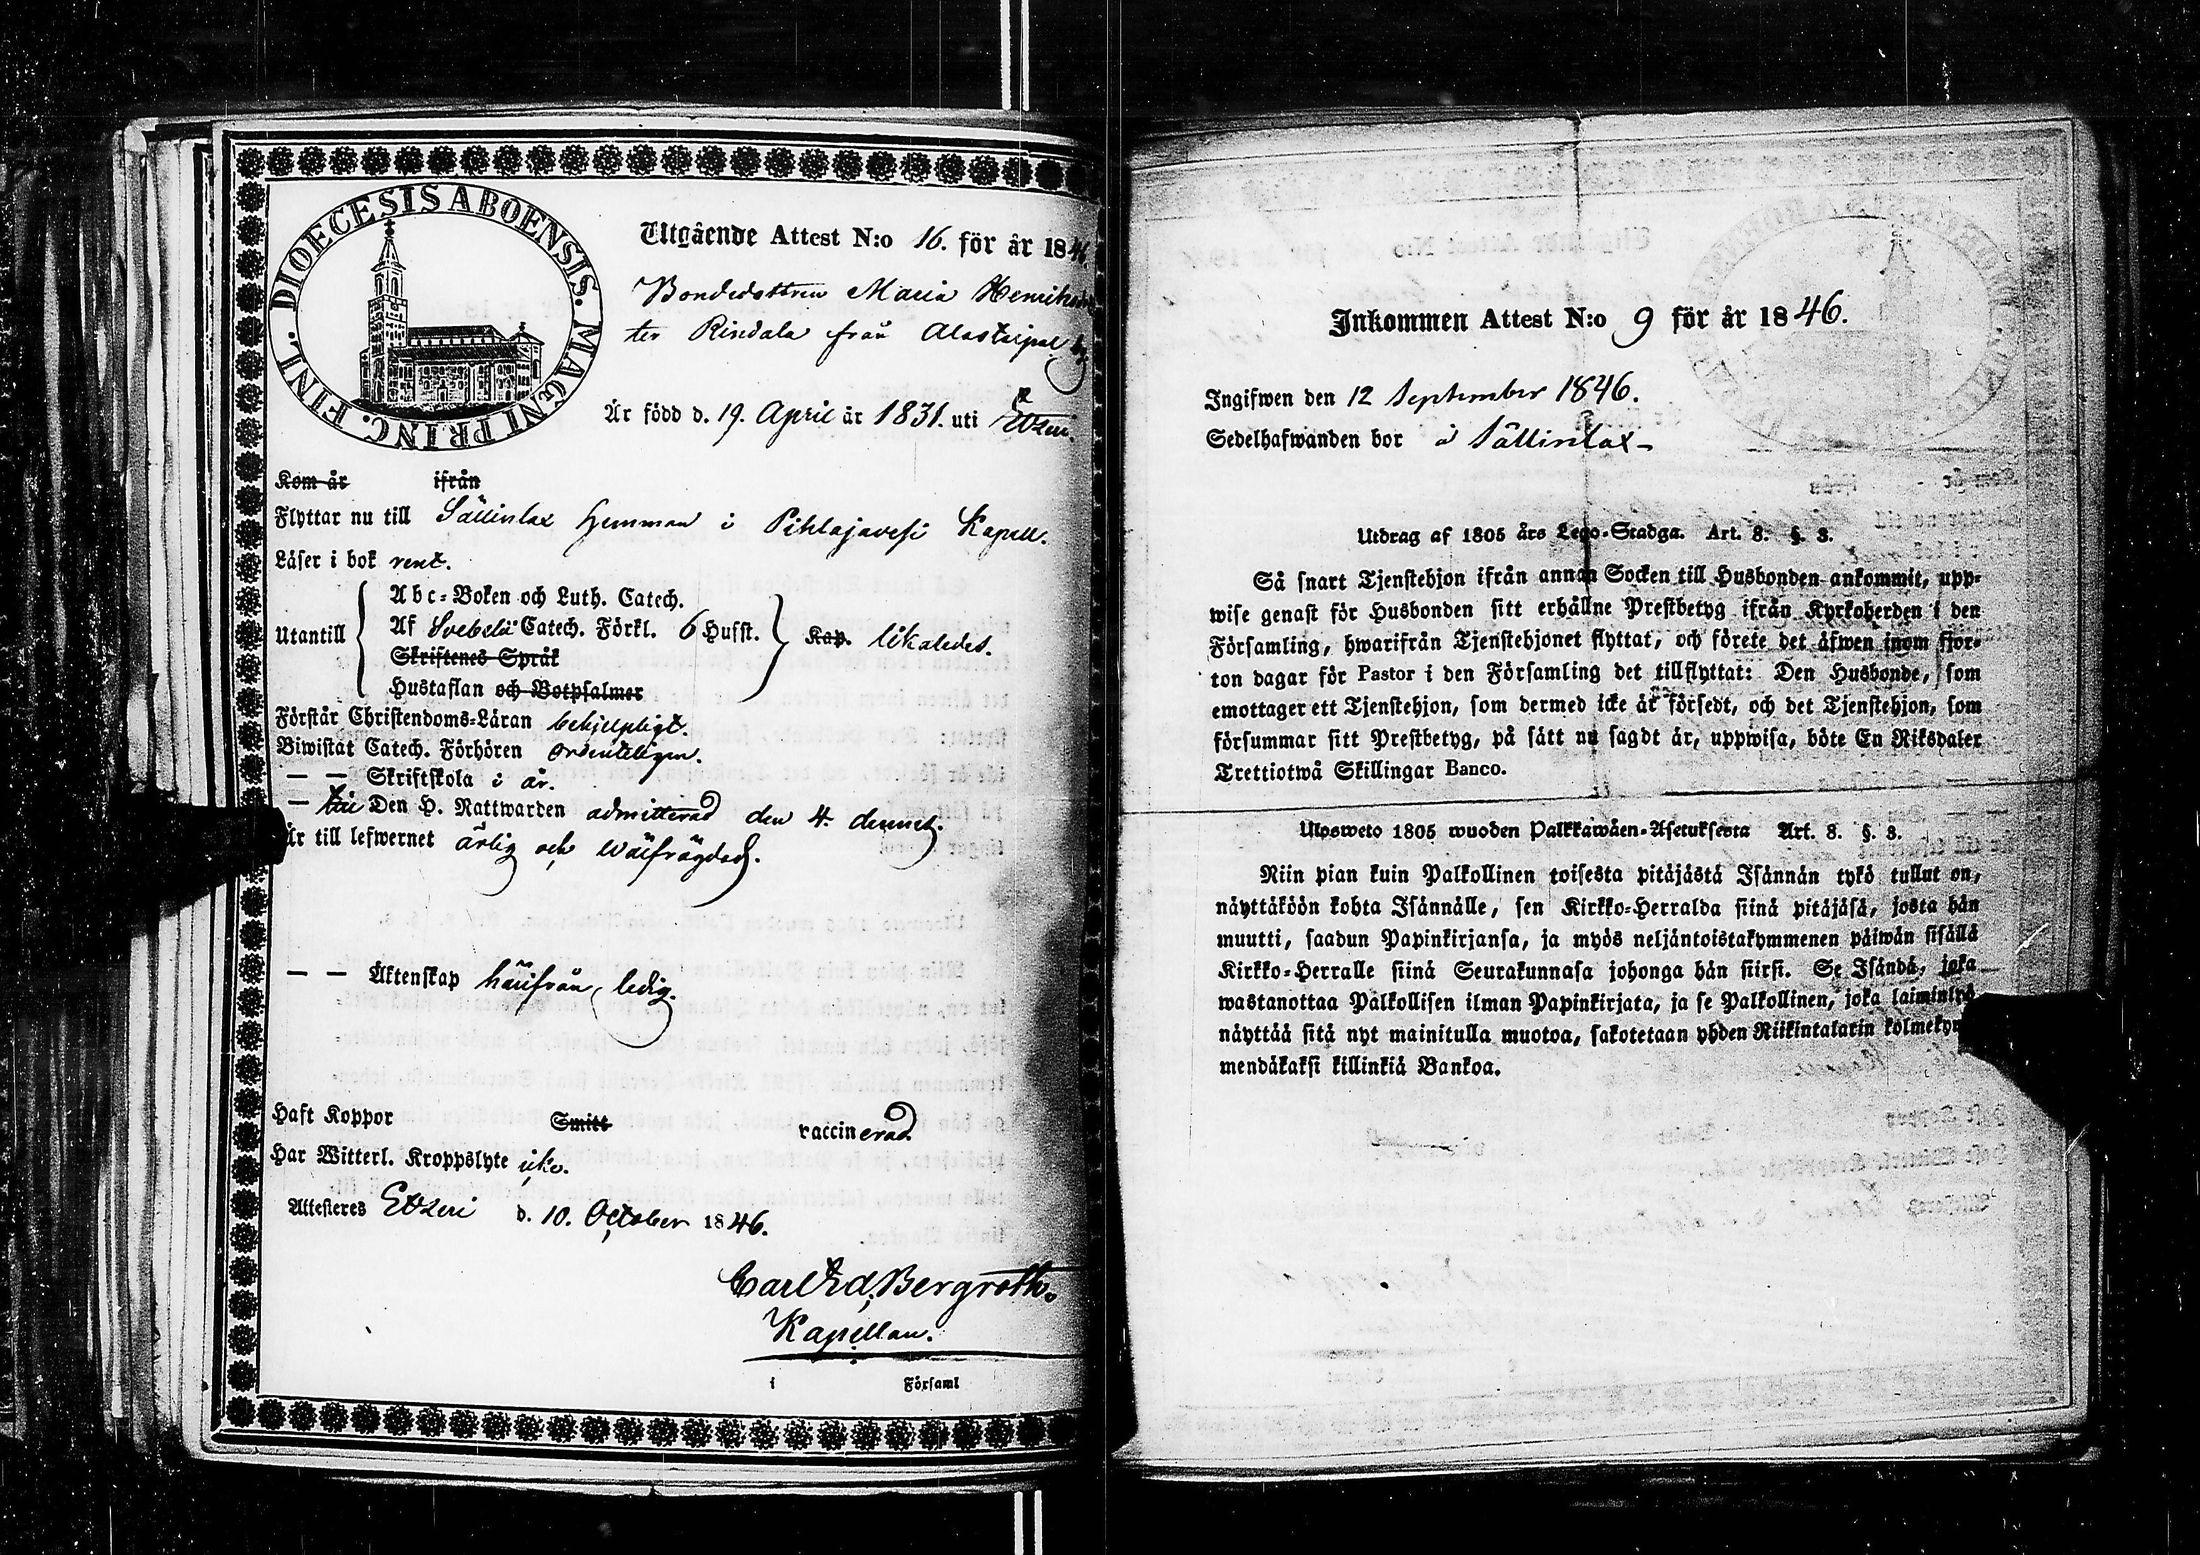 DIOECESIS ABOENSIS. MAGNI PRINC. FINL.
Utgående Attest N:o 16. för år 1846.
Bondedottren Maria Henriksdr
ter Rindala från Alastaipal by
Är född d. 19. April år 1831. uti Etzeri.
Kom år ifrån
Flyttar nu till Sällinlax hemman i Pihlajavesi Kapell.
Läser i bok rent.
Abc-Boken och Luth. Catech.
Utantill Af Svebelii Catech. Förkl. 6 Husst. Kap. likaledes.
Skriftenes Språk
Hustaflan och Botpsalmer
Förstår Christendoms-Läran behjelpligt.
Biwistat Catech. Förhören ordentligen.
— — Skriftskola i år.
— till Den H. Nattwarden admitterad den 4. dennes.
Är till lefwernet ärlig och wälfrägdad.
— — Äktenskap härifrån ledig.
Haft Koppor Smitt vaccinerad
Har Witterl. Kroppslyte icke.
Attesteres Etzeri d. 10. October 1846.
Carl Ed. Bergroth.
Kapellan.
i Församl
Inkommen Attest N:o 9 för år 1846.
Ingifwen den 12 September 1846.
Sedelhafwanden bor å Sällinlax
Utdrag af 1805 års Lego-Stadga. Art. 8. §. 3.
Så snart Tjenstehjon ifrån annan Socken till Husbonden ankommit, upp-
wise genast för Husbonden sitt erhållne Prestbetyg ifrån Kyrkoherden i den
Församling, hwarifrån Tjenstehjonet flyttat, och förete det äfwen inom fjor-
ton dagar för Pastor i den Församling det tillflyttat: Den Husbonde, som
emottager ett Tjenstehjon, som dermed icke är försedt, och det Tjenstehjon, som
försummar sitt Prestbetyg, på sätt nu sagdt är, uppwisa, böte En Riksdaler
Trettiotwå Skillingar Banco.
Ulosweto 1805 wuoden Palkkawäen-Asetuksesta Art. 8. §. 3.
Niin pian kuin Palkollinen toisesta pitäjästä Isännän tykö tullut on,
näyttäköön kohta Isännälle, sen Kirkko-Herralda siinä pitäjäsä, josta hän
muutti, saadun Papinkirjansa, ja myös neljäntoistakymmenen päiwän sisällä
Kirkko-Herralle siinä Seurakunnasa johonga hän siirsi. Se Isändä, joka
wastanottaa Palkollisen ilman Papinkirjata, ja se Palkollinen, joka laiminlyö
näyttää sitä nyt mainitulla muotoa, sakotetaan yhden Riikintalarin kolmekym-
mendäkaksi killinkiä Bankoa.